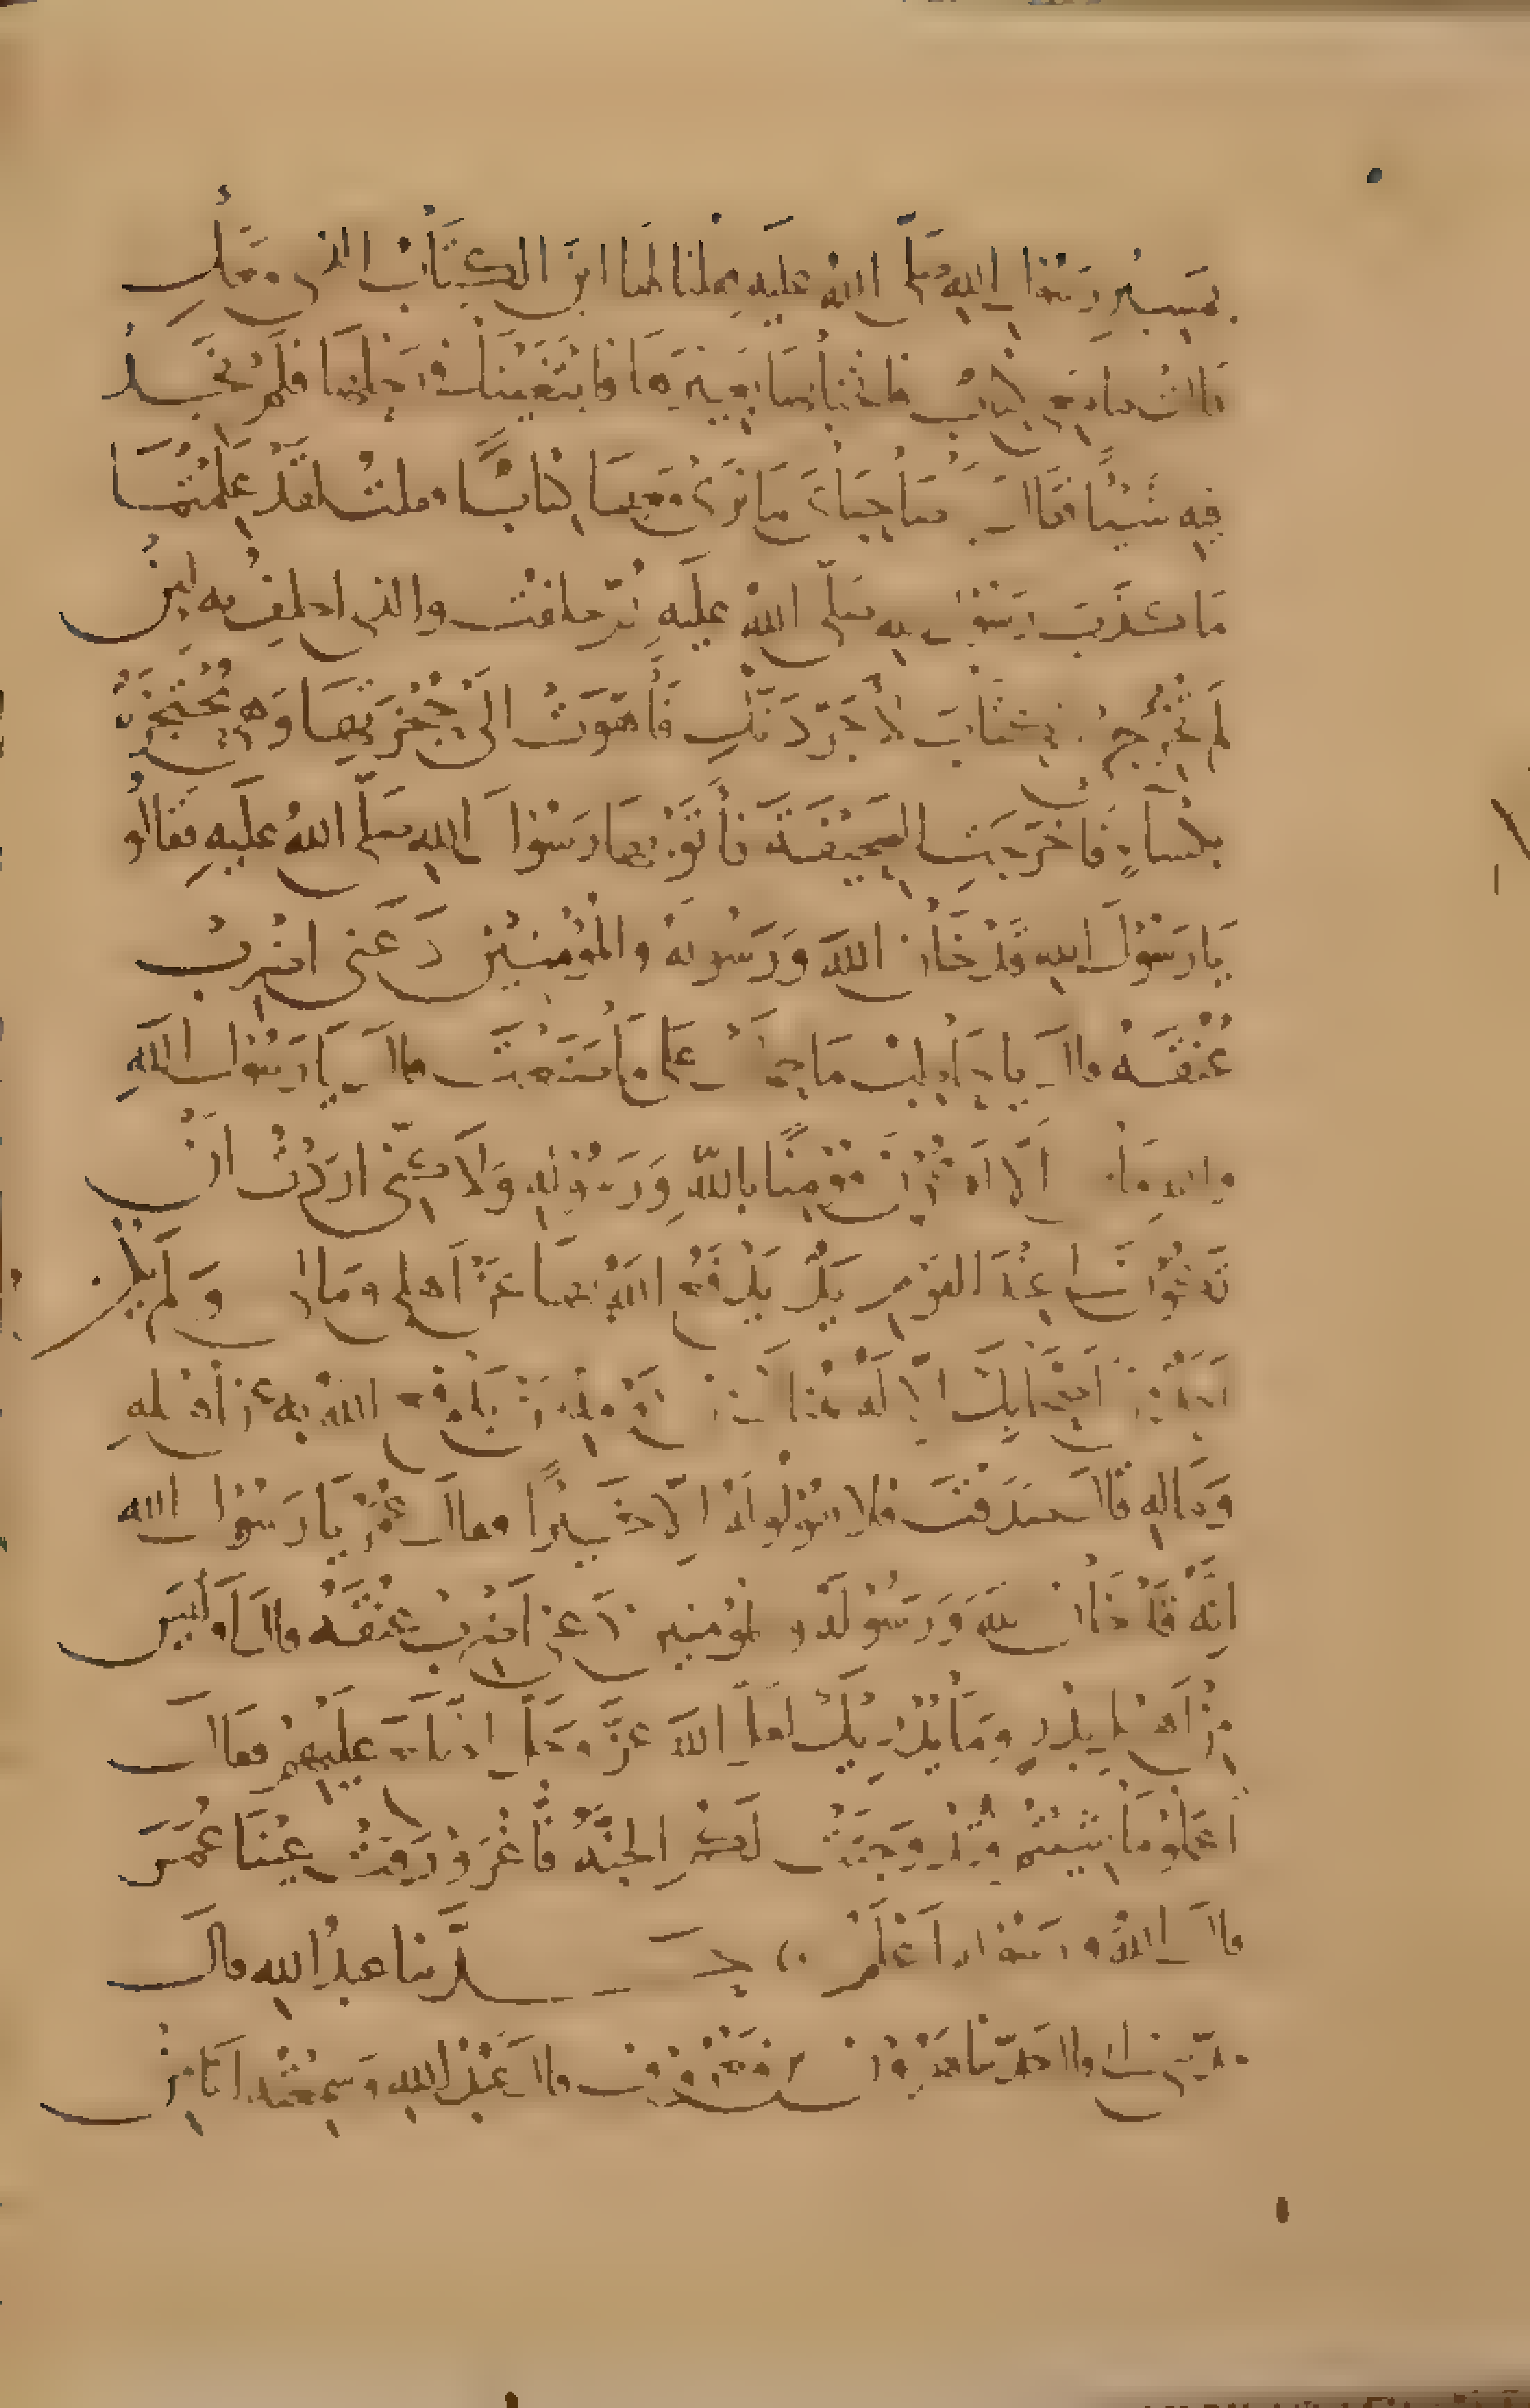 بمسير رسول الله صلى الله عليه فقلنا لها اين الكتاب الذي معك
قالت ما معي كتاب فانخنا بها بعيرها فابتغينا في رحلها فلم نجد
فيه شيئًا فقال صاحباي ما نرى معها كتابًا فقلت لقد علمتما
ما كذب رسول الله صلى الله عليه ثم حلفت والذي احلف به لئن
لم تخرجي الكتاب لأجردنك فأهوت الى حجزتها وهي محتجزة
بكساءٍ فأخرجت الصحيفة فأتوا بها رسول الله صلى الله عليه فقالوا
يا رسول الله قد خان الله ورسوله والمؤمنين دعني اضرب
عنقه قال يا حاطب ما حملك على ما صنعت قال يا رسول الله
والله ما الا اكون مؤمنًا بالله ورسوله ولاكني اردت ان
تكون لي عند القوم يد يدفع الله بها عن اهلي ومالي ولم يكن
احد من اصحابك الا له هنالك من قومه من يدفع الله به عن اهله
وماله قال صدقت فلا تقولوا له الا خيرًا فقال عمر يا رسول الله
انه قد خان الله ورسوله والمؤمنين دعني اضرب عنقه قال أوليس
من اهل بدرٍ وما يدريك لعل الله عز وجل اطلع عليهم فقال
اعملوا ما شئتم فقد وجبت لكم الجنة فاغرورقت عينا عمر
قال الله ورسوله اعلم حدثنا عبد الله قال
حدثني ابي قال حدثنا هرون بن معروف قال عبد الله وسمعته انا من